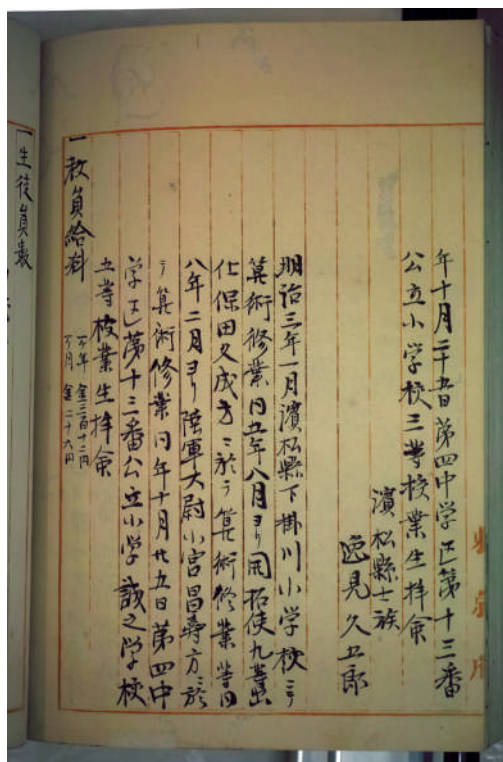 年十月二十五日第四中学区第十三番
公立小学校三等授業生拝命
濱松縣士族
逸見久五郎
明治三年一月濱松縣下掛川小学校ニテ
算術修業同五年八月ヨリ開拓使九等出
仕保田久成方ニ於テ算術修業等同
八年二月ヨリ陸軍大尉小宮昌寿方ニ於
テ算術修業同年十月廿五日第四中
学区第十三番公立小学誠之学校
五等授業生拝命
一教員給料
一ケ年金三百十二円
一ケ月金二十六円
一生徒員数